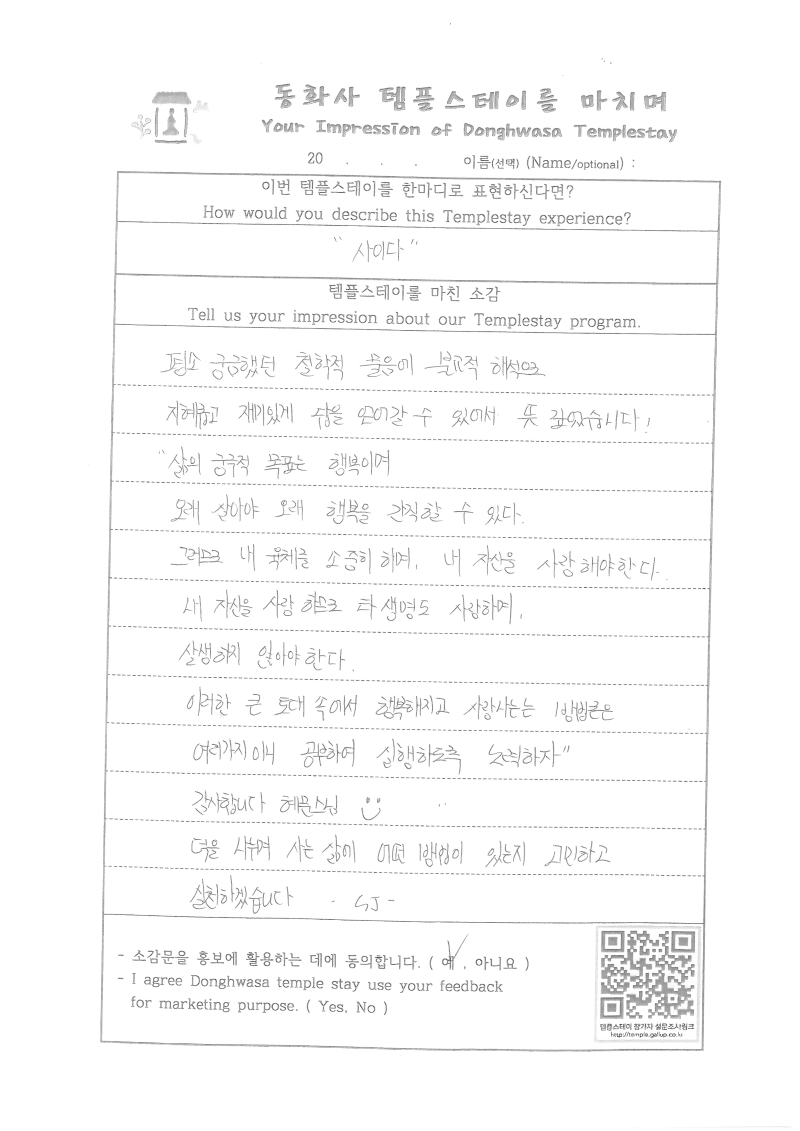 동화사 템플스테이를 마치며
Your Impression of Donghwasa Templestay
20 . . . 이름(선택) (Name/optional) :
이번 템플스테이를 한마디로 표현하신다면?
How would you describe this Templestay experience?
"사이다"
템플스테이를 마친 소감
Tell us your impression about our Templestay program.
평소 궁금했던 철학적 물음에 불교적 해석으로
지혜롭고 재미있게 답을 얻어갈 수 있어서 뜻 깊었습니다!
"삶의 궁극적 목표는 행복이며
오래 살아야 오래 행복을 간직할 수 있다.
그러므로 내 육체를 소중히 하며, 내 자신을 사랑해야한다.
내 자신을 사랑하므로 타 생명도 사랑하며,
살생하지 않아야한다.
이러한 큰 토대 속에서 행복해지고 사랑사는 방법론은
여러가지이니 공부하여 실행하도록 노력하자"
감사합니다 혜문스님
덕을 나누며 사는 삶에 어떤 방법이 있는지 고민하고
실천하겠습니다 - SJ -
- 소감문을 홍보에 활용하는 데에 동의합니다. ( 예 , 아니요 )
- I agree Donghwasa temple stay use your feedback
for marketing purpose. ( Yes, No )
템플스테이 참가자 설문조사링크
http://temple.gallup.co.kr